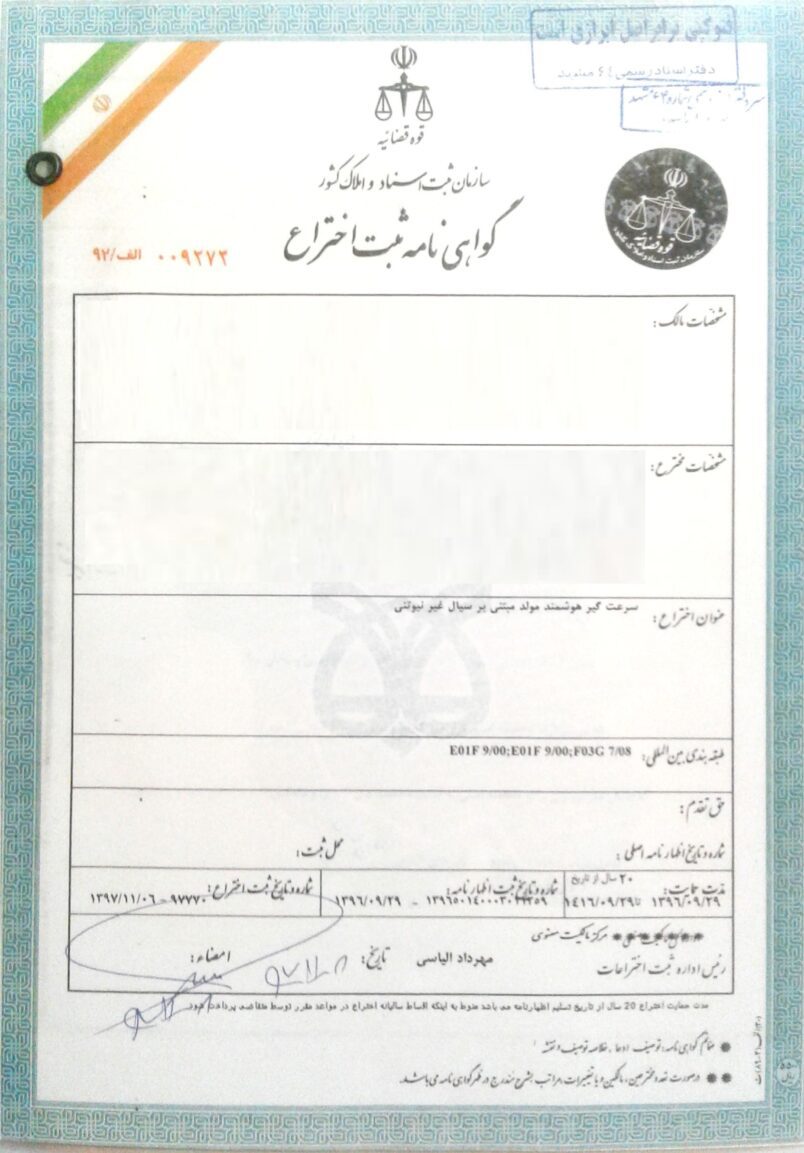 فتوکپی برابر اصل ابرازی است
دفتر اسناد رسمی ۶۴ مشهد
قوه قضائیه
سازمان ثبت اسناد و املاک کشور
گواهی نامه ثبت اختراع
۰۰۹۲۷۳ الف/۹۲
قوه قضائیه
سازمان ثبت اسناد و املاک کشور
مشخصات مالک:
مشخصات مخترع:
عنوان اختراع: سرعت گیر هوشمند مولد مبتنی بر سیال غیر نیوتنی
طبقه بندی بین المللی: E01F 9/00;E01F 9/00;F03G 7/08
حق تقدم:
شماره و تاریخ اظهار نامه اصلی: محل ثبت:
مدت حمایت: ۲۰ سال از تاریخ
۱۳۹۶/۰۹/۲۹ تا ۱۴۱۶/۰۹/۲۹
شماره و تاریخ ثبت اظهار نامه:
- ۱۳۹۶/۰۹/۲۹
شماره و تاریخ ثبت اختراع:
۹۷۷۷۰ - ۱۳۹۷/۱۱/۰۶
مرکز مالکیت معنوی
رئیس اداره ثبت اختراعات مهرداد الیاسی تاریخ: امضاء:
مدت حمایت اختراع 20 سال از تاریخ تسلیم اظهارنامه می باشد منوط به اینکه اقساط سالیانه اختراع در مواعد مقرر توسط متقاضی پرداخت شود.
● ضمائم گواهی نامه: توصیف، ادعا، خلاصه توصیف و نقشه
●● در صورت تعدد مخترعین، مالکین و یا تغییرات، مراتب بشرح مندرج در ظهر گواهی نامه می باشد.